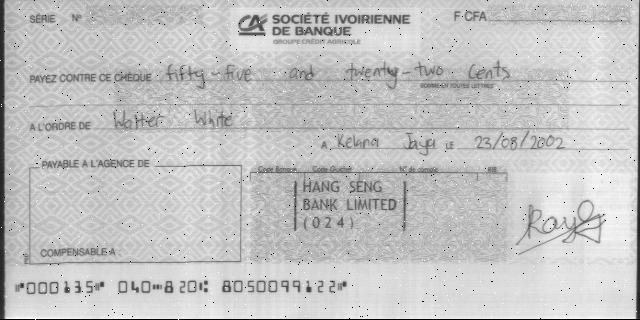 SÉRIE N° F.CFA
CA SOCIÉTÉ IVOIRIENNE
DE BANQUE
GROUPE CRÉDIT AGRICOLE
PAYEZ CONTRE CE CHÈQUE fifty-five and twenty-two Cents
SOMME EN TOUTES LETTRES
A L'ORDRE DE Walter White
A, Kelana Jaya LE 23/08/2002
PAYABLE A L'AGENCE DE
Code Banque Code Guichet N° de compte RIB
HANG SENG
BANK LIMITED
(024)
COMPENSABLE A :
⑈000135⑈ 040⑉820⑆ 8050099122⑈